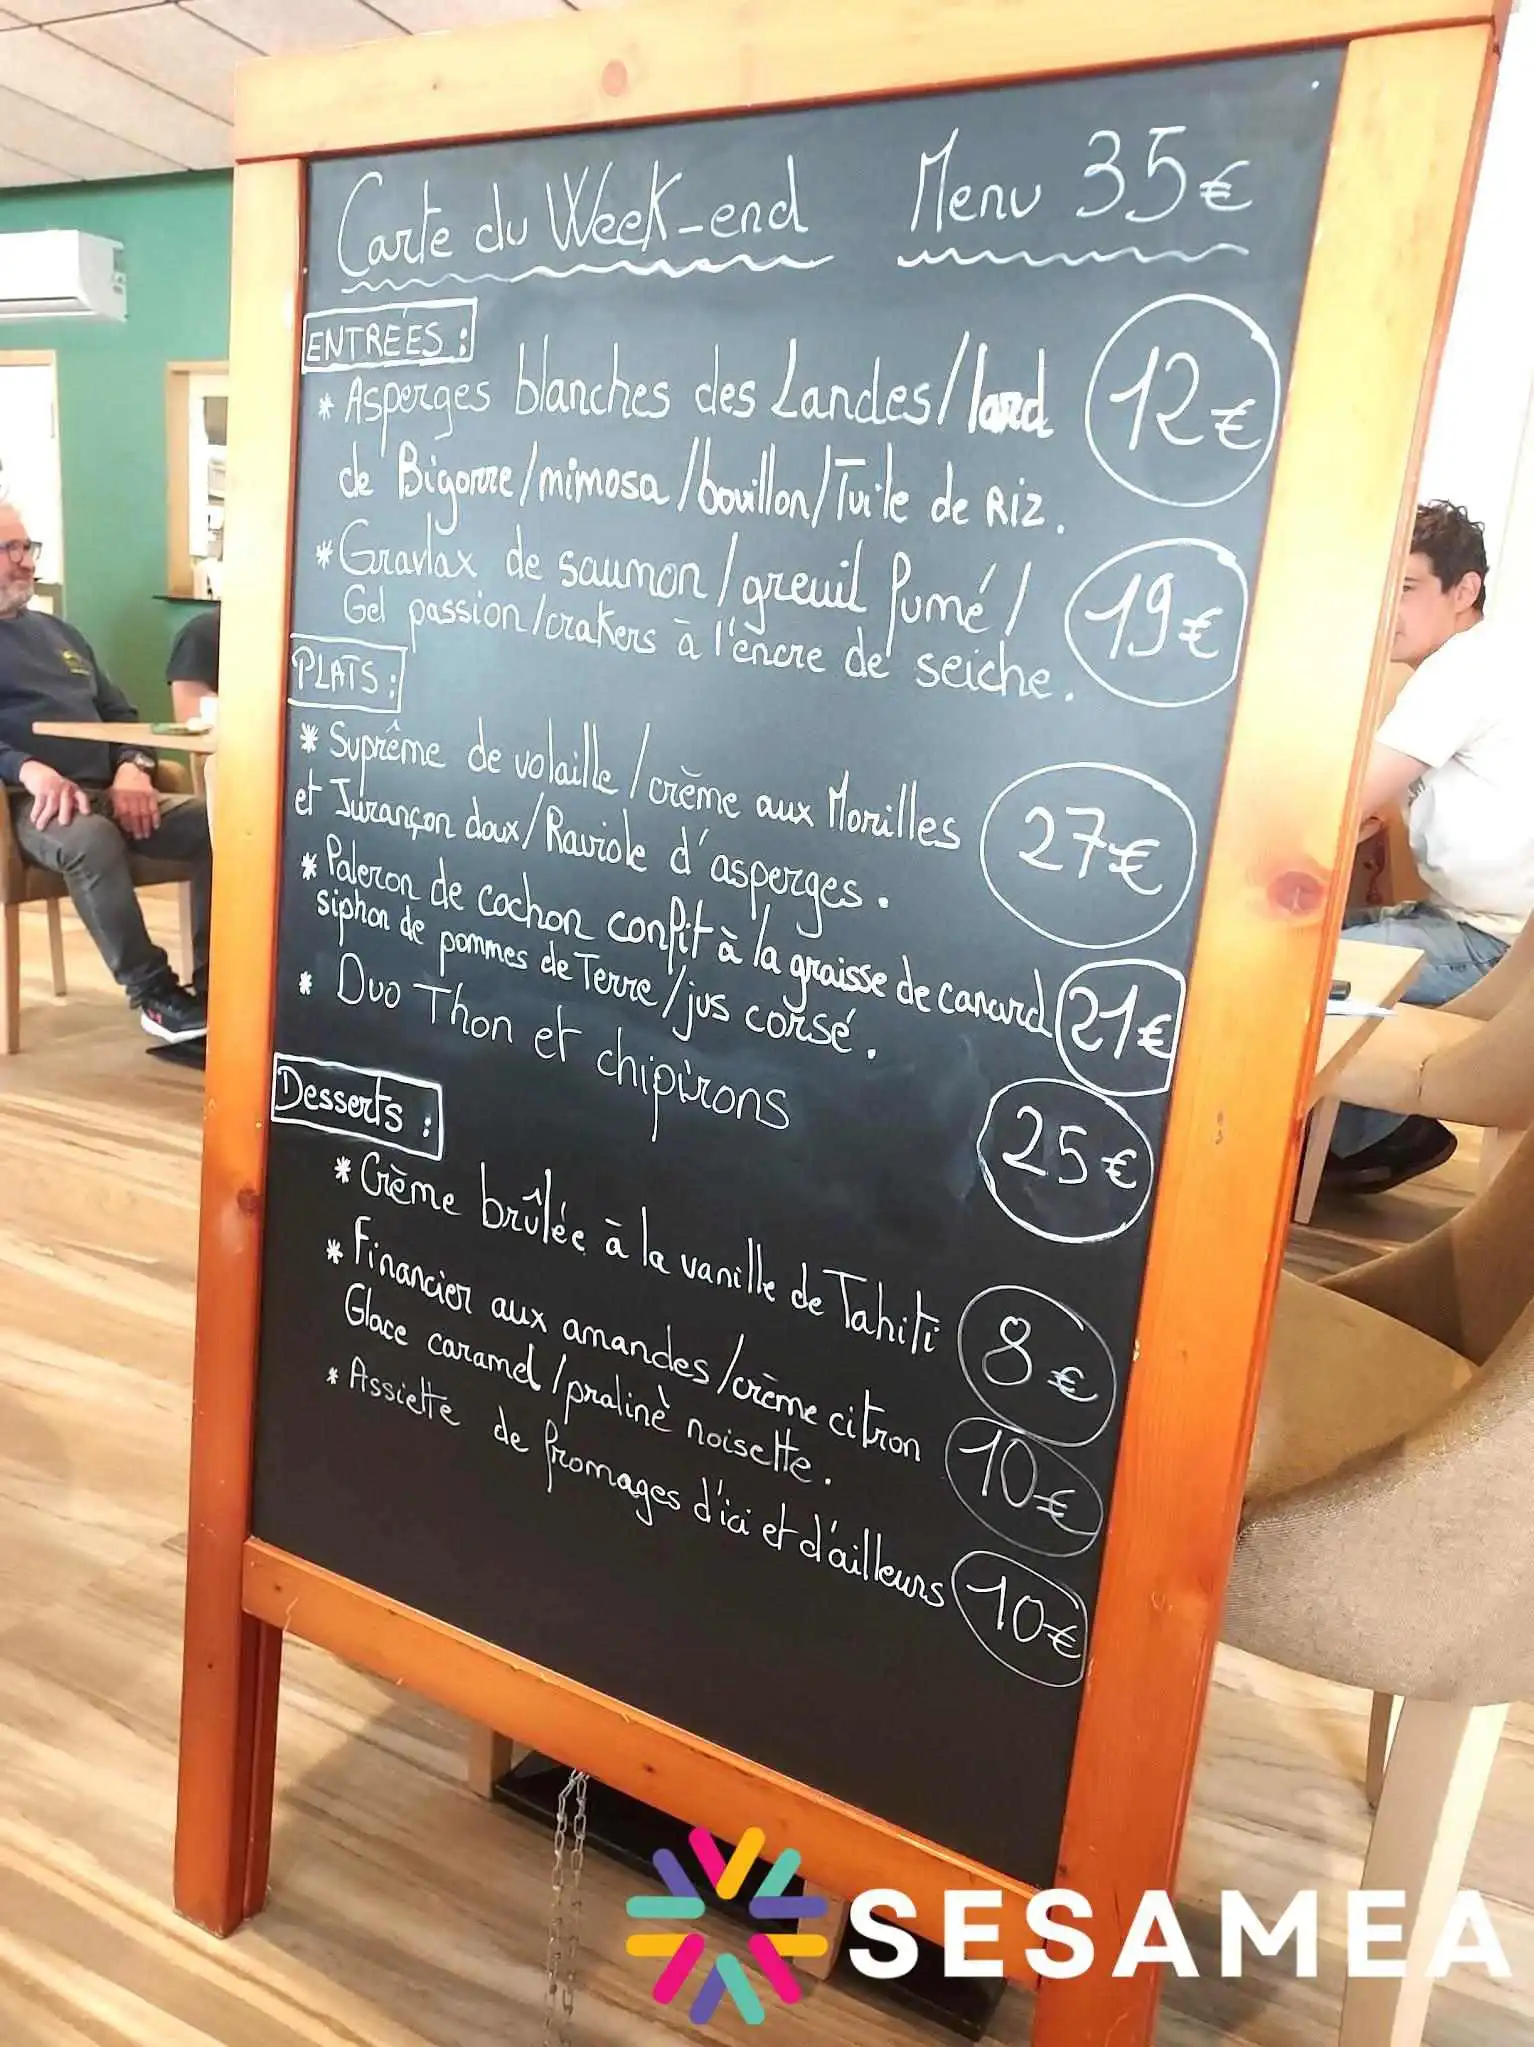 Carte du Week-end Menu 35€
ENTREES :
* Asperges blanches des Landes/lard 12€
de Bigorre/mimosa/bouillon/Tuile de RIZ.
* Gravlax de saumon/greuil fumé/ 19€
Gel passion/crakers à l'encre de seiche.
PLATS :
* Suprême de volaille/crème aux Morilles 27€
et Jurançon doux/Raviole d'asperges.
* Paleron de cochon confit à la graisse de canard 21€
siphon de pommes de Terre/jus corsé.
* Duo Thon et chipirons 25€
Desserts :
* Crème brûlée à la vanille de Tahiti 8€
* Financier aux amandes/crème citron 10€
Glace caramel/praliné noisette.
* Assiette de fromages d'ici et d'ailleurs 10€
SESAMEA